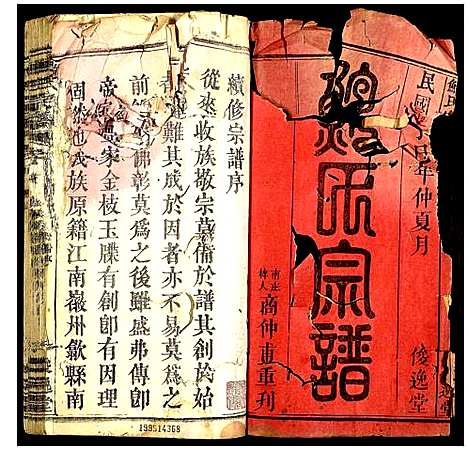 民國己巳年仲夏月
氏宗譜
俊逸堂
商仲甫重刊
續修宗譜序
從來收族敬宗莫備於譜其創於始
者雖難其成於因者亦不易莫為之
前弗彰莫為之後雖盛弗傳卽
帝家金枝玉牒有創卽有因理
固然也我族原籍江南徽州歙縣南
199514368